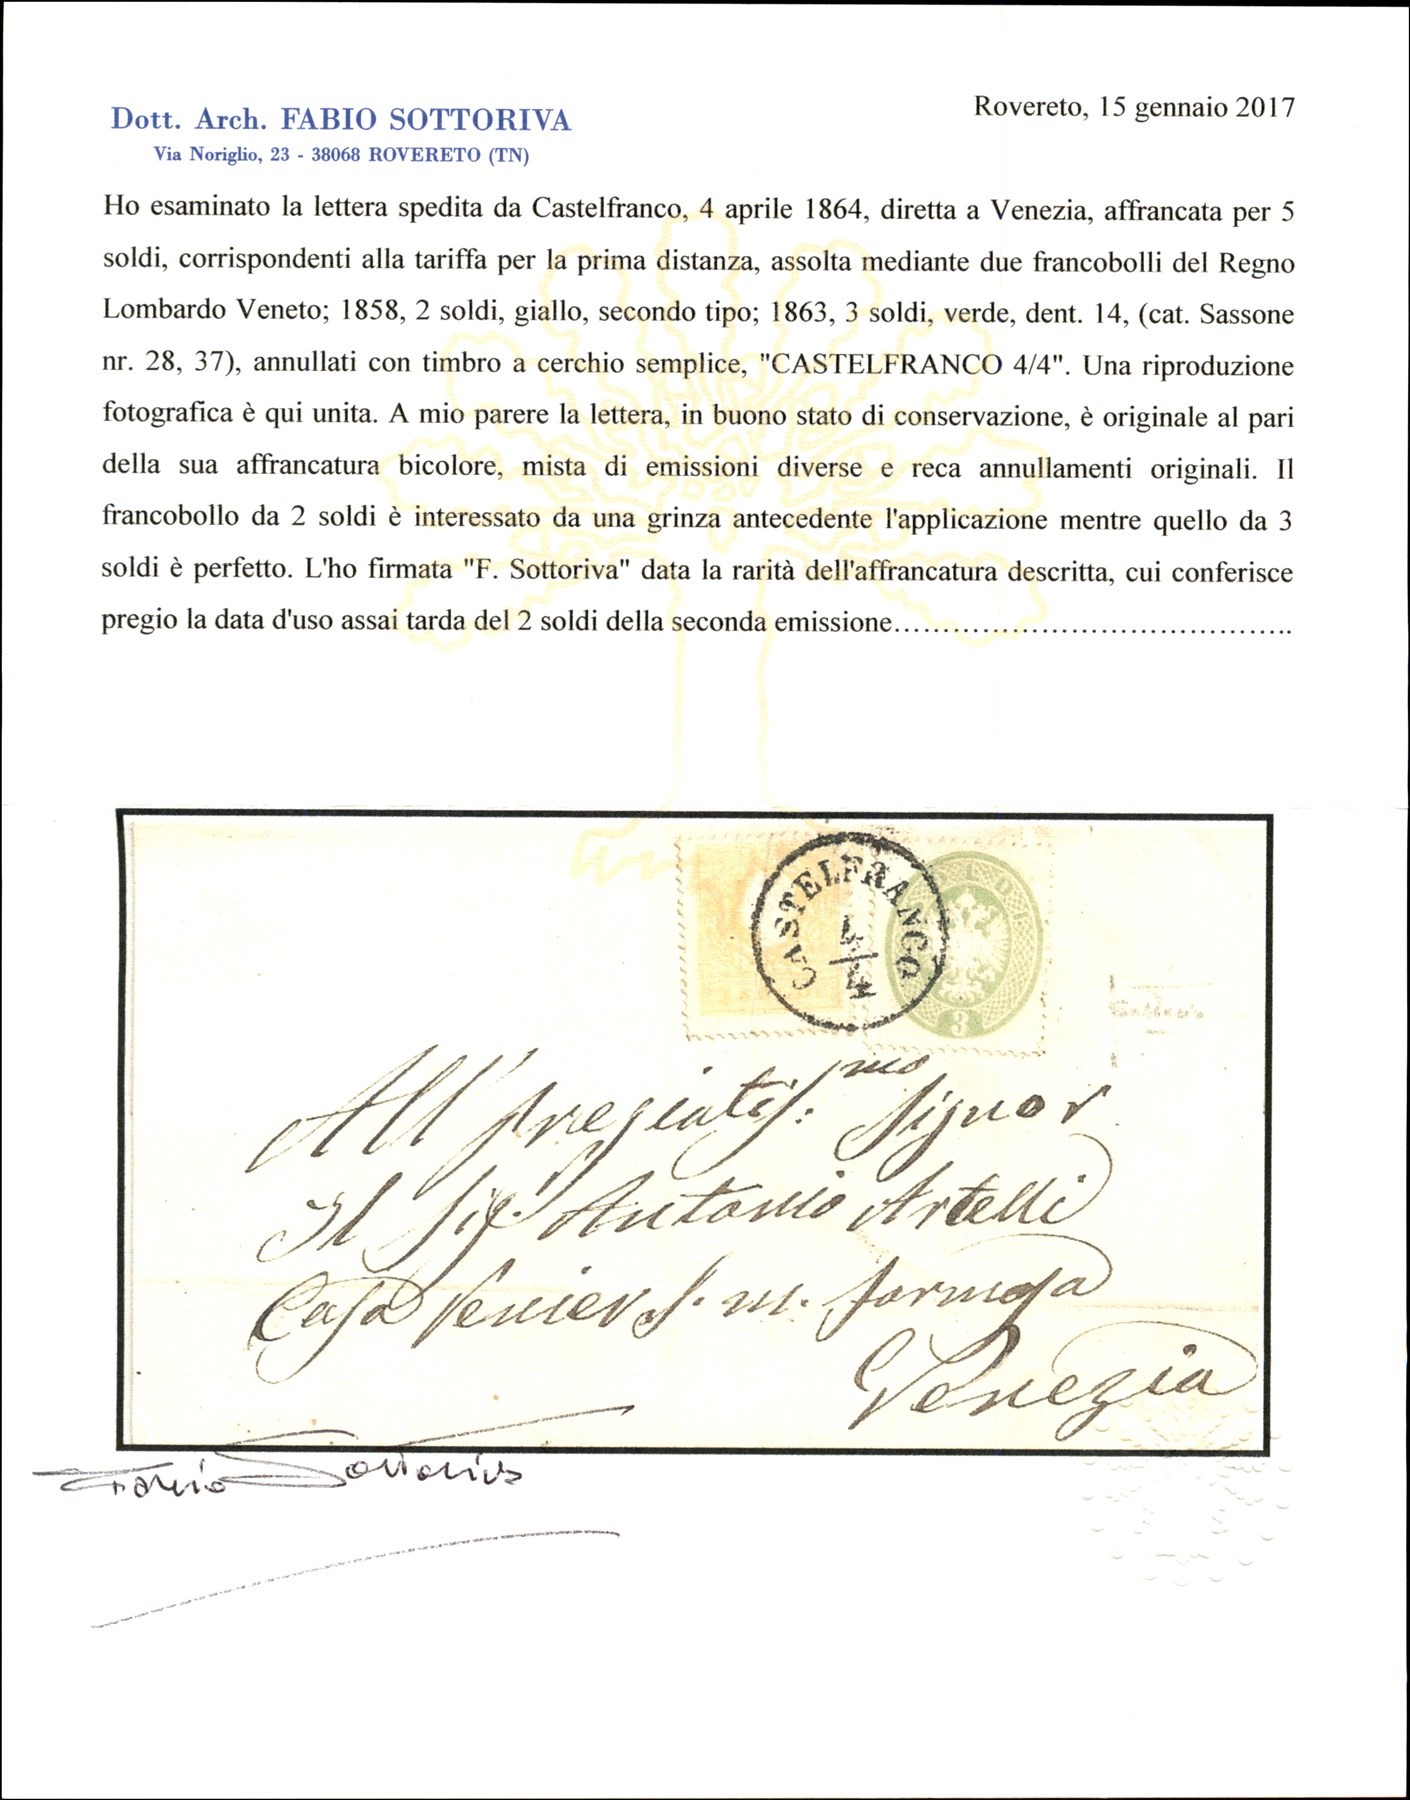 Dott. Arch. FABIO SOTTORIVA
Via Noriglio, 23 - 38068 ROVERETO (TN)
Rovereto, 15 gennaio 2017
Ho esaminato la lettera spedita da Castelfranco, 4 aprile 1864, diretta a Venezia, affrancata per 5
soldi, corrispondenti alla tariffa per la prima distanza, assolta mediante due francobolli del Regno
Lombardo Veneto; 1858, 2 soldi, giallo, secondo tipo; 1863, 3 soldi, verde, dent. 14, (cat. Sassone
nr. 28, 37), annullati con timbro a cerchio semplice, "CASTELFRANCO 4/4". Una riproduzione
fotografica è qui unita. A mio parere la lettera, in buono stato di conservazione, è originale al pari
della sua affrancatura bicolore, mista di emissioni diverse e reca annullamenti originali. Il
francobollo da 2 soldi è interessato da una grinza antecedente l'applicazione mentre quello da 3
soldi è perfetto. L'ho firmata "F. Sottoriva" data la rarità dell'affrancatura descritta, cui conferisce
pregio la data d'uso assai tarda del 2 soldi della seconda emissione.......................................
CASTELFRANCO
4/4
SOLDI
3
All' pregiatis:mo Signor
Il Sig. Antonio Artelli
Casa Venier S. m. formosa
Venezia
Fabio Sottoriva